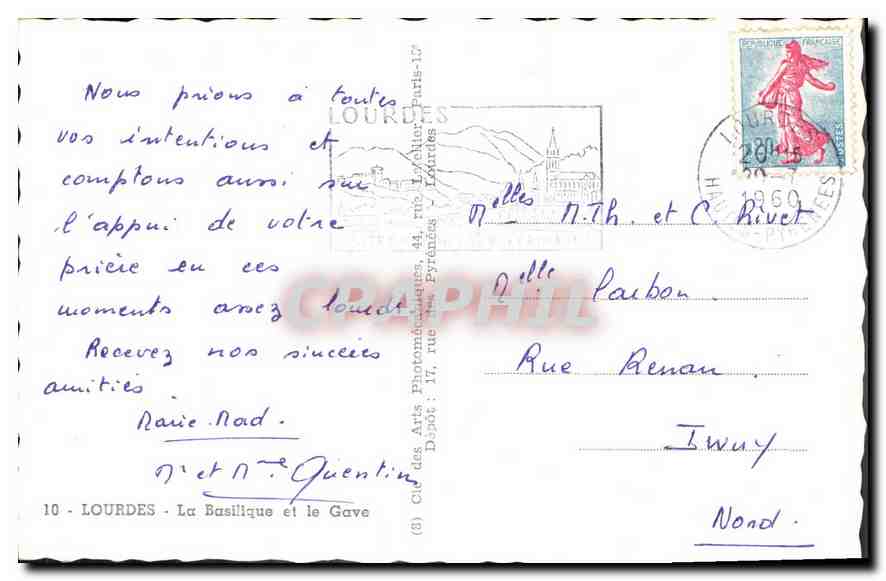 Nous prions à toutes
vos intentions et
comptons aussi sur
l'appui de votre
prière en ces
moments assez lourds
Recevez nos sincères
amitiés
Marie-Mad.
Mr et Mme Quentin
10 - LOURDES - La Basilique et le Gave
(S) Cie des Arts Photomécaniques, 44, rue Letellier Paris-15e
Dépôt : 17, rue des Pyrénées - Lourdes
LOURDES
REPUBLIQUE FRANÇAISE
POSTES
20
1960
PYRENEES
Melles M.Th. et C. Rivet
Melle Carbon.
Rue Renan.
Iwuy
Nord.
GRAPHIL